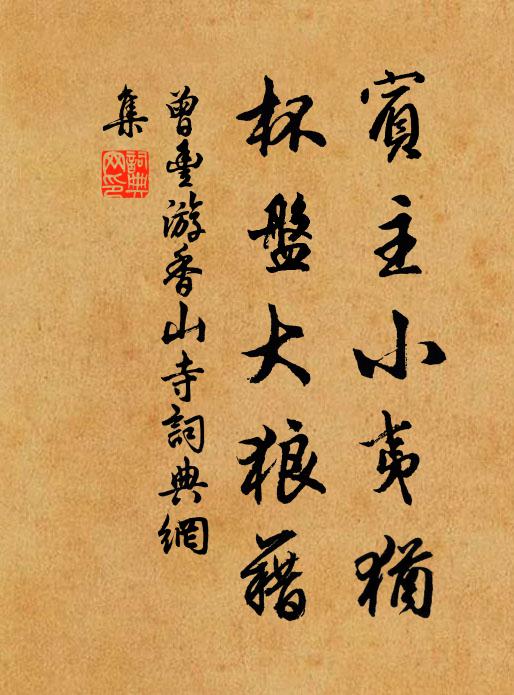 賓主小夷猶
杯盤大狼藉
曾豐游香山寺詞典網
集
詞典网印